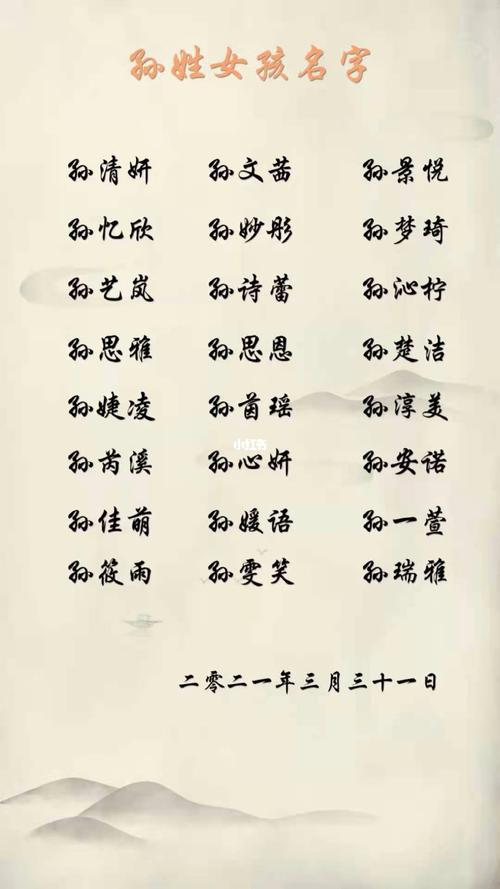 孙姓女孩名字
孙清妍 孙文茜 孙景悦
孙忆欣 孙妙彤 孙梦琦
孙艺岚 孙诗蕾 孙沁柠
孙思雅 孙思恩 孙楚洁
孙婕凌 孙茵瑶 孙淳美
孙芮溪 孙心妍 孙安诺
小红书
孙佳萌 孙媛语 孙一萱
孙筱雨 孙雯笑 孙瑞雅
二零二一年三月三十一日